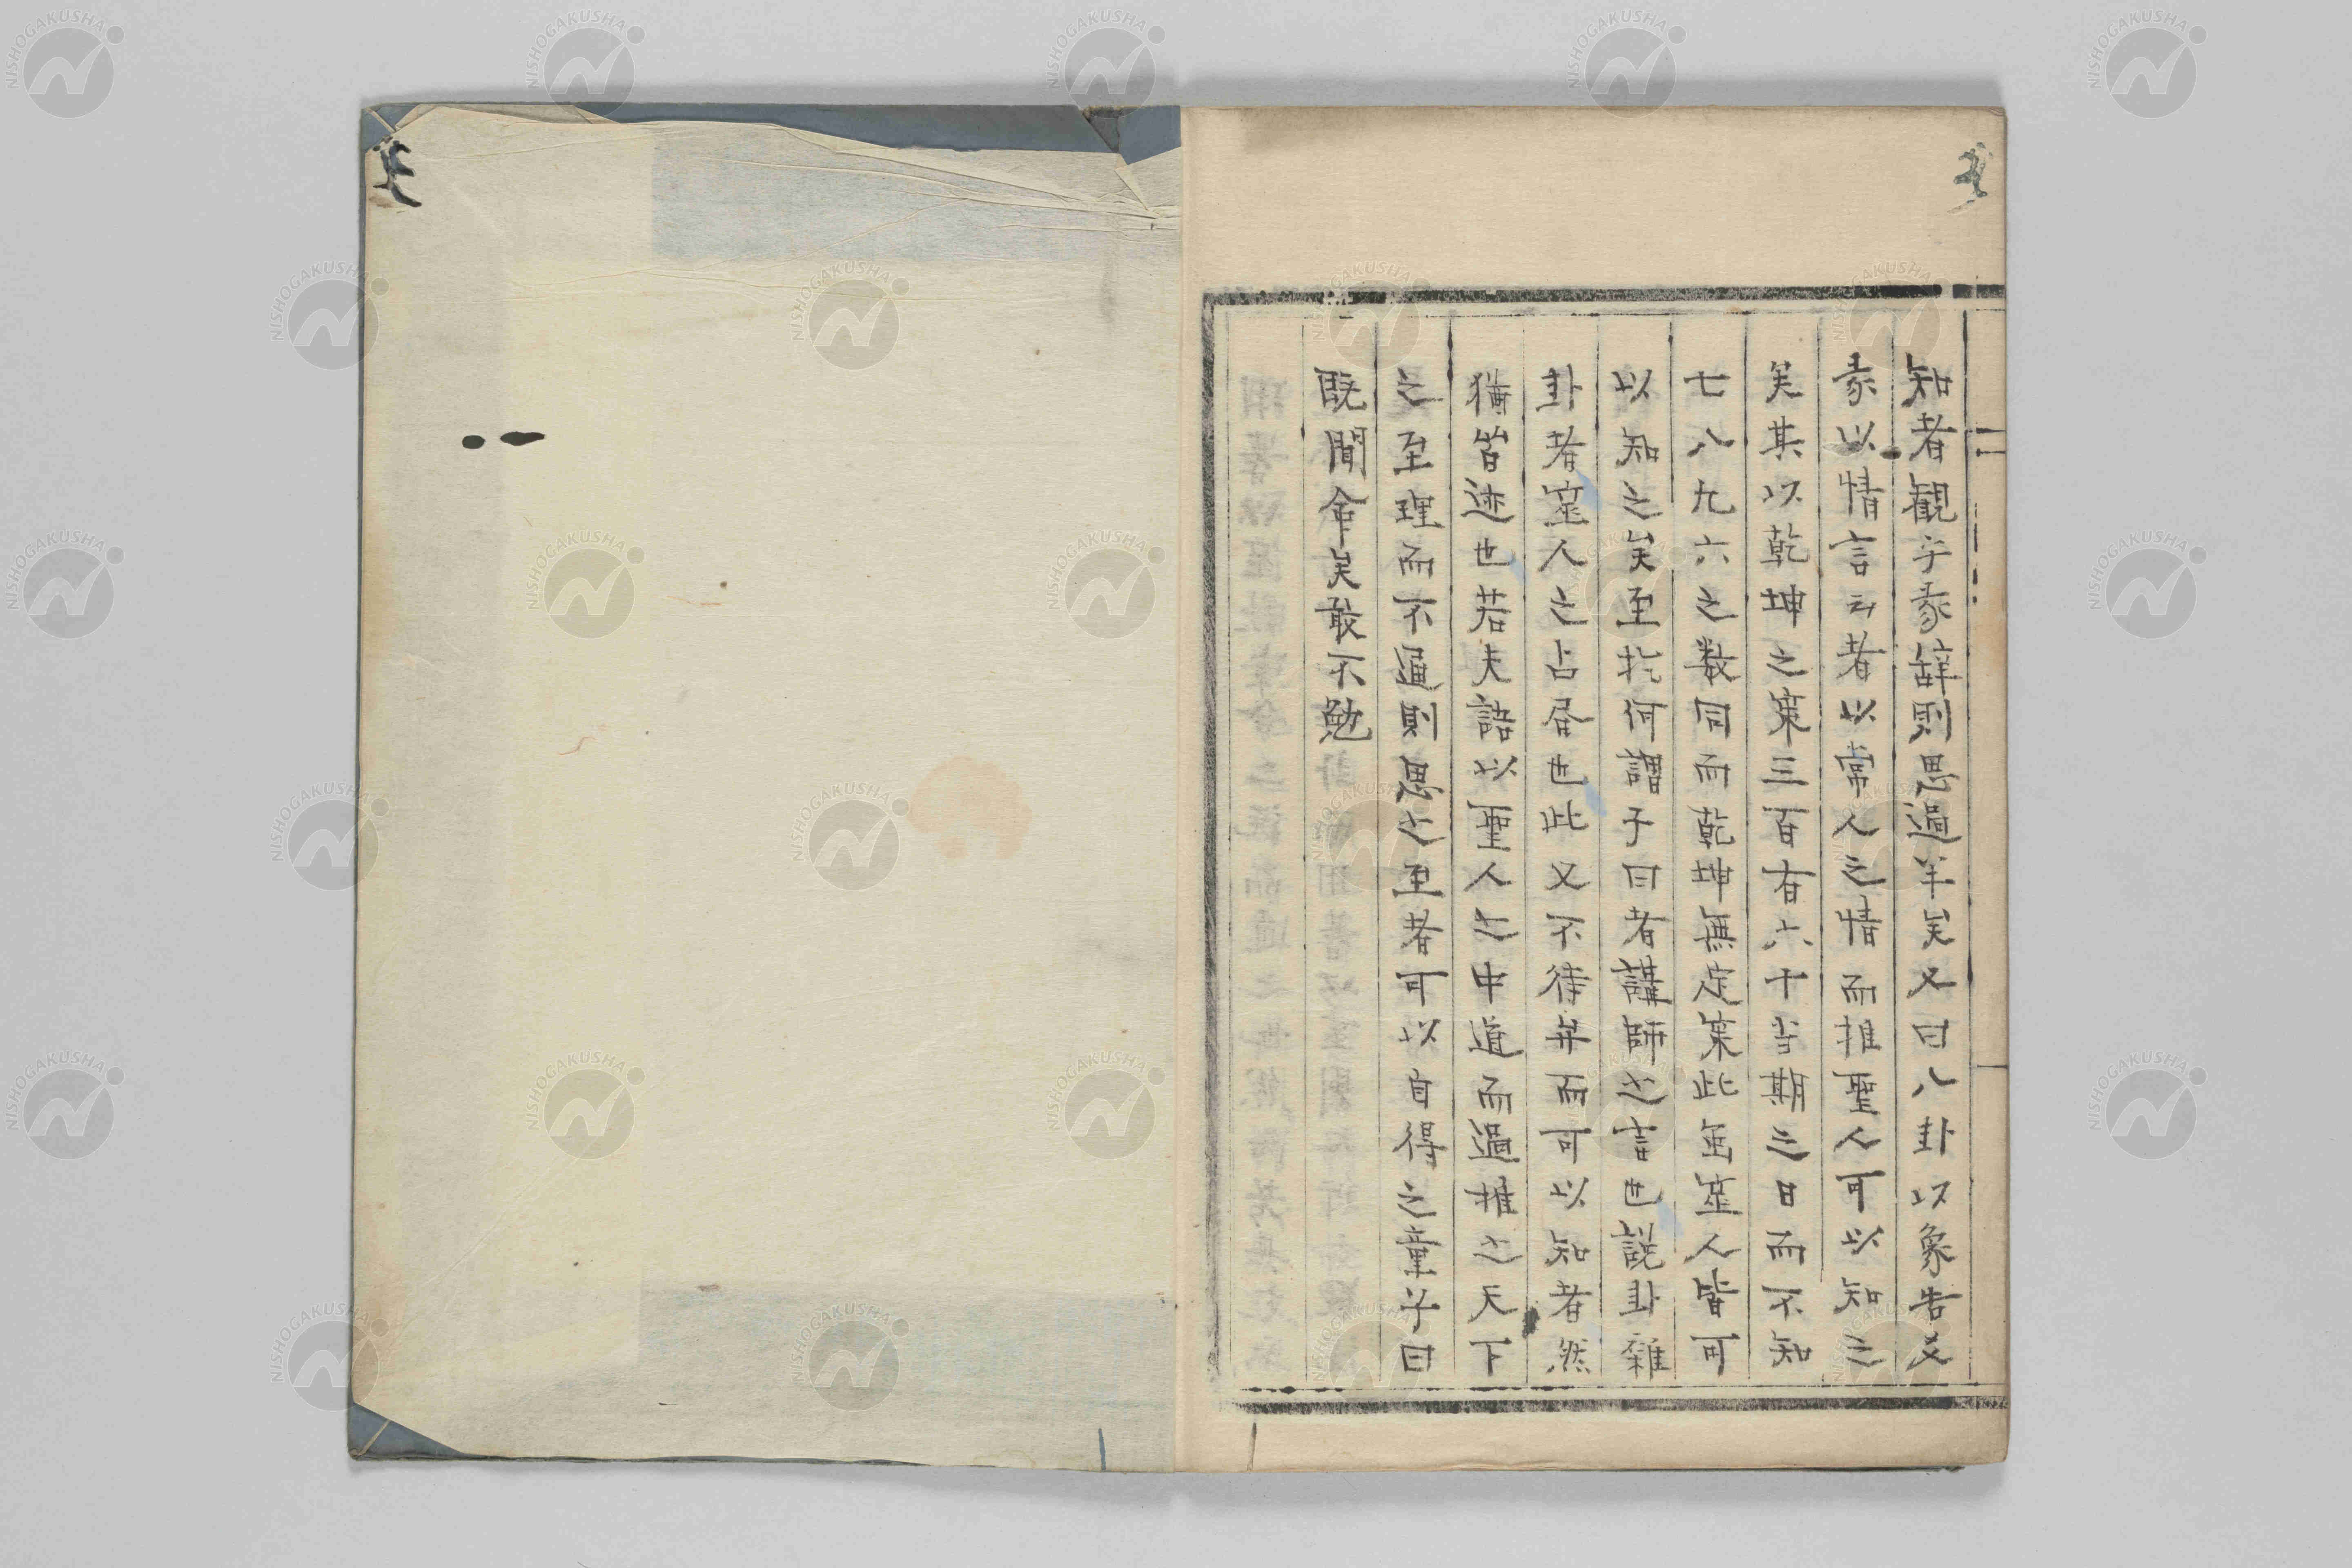 知者観乎彖辞則思過半矣又曰八卦以象告爻
彖以情言云者以常人之情而推聖人可以知之
矣其以乾坤之策三百有六十当期之日而不知
七八九六之数同而乾坤無定策此固筮人皆可
以知之矣至於何謂子曰者講師之言也説卦雑
卦者筮人之占書也此又不待弁而可以知者然
猶皆迹也若夫語以聖人之中道而過推之天下
之至理而不通則思之至者可以自得之童子曰
既聞命矣敢不勉
NISHOGAKUSHA